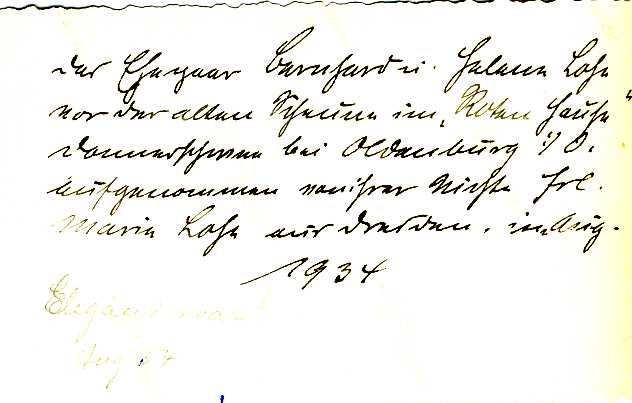 das Ehepaar Bernhard u. Helene Lohse
vor der alten Scheune im „Roten Hause"
Donnerschwee bei Oldenburg i/O.
aufgenommen von ihrer Nichte Frl.
Maria Lohse aus Dresden. im Aug.
1934
Aug 37